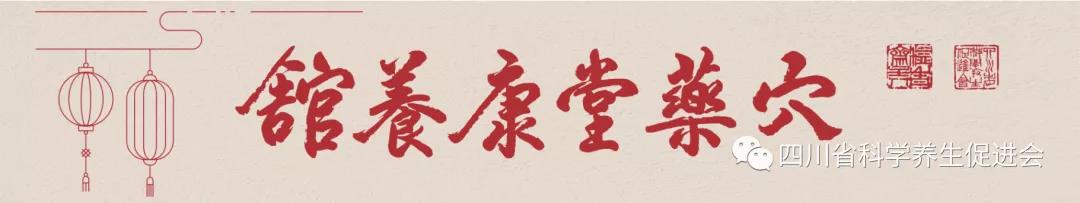 穴藥堂康養舘
四川省科学养生促进会